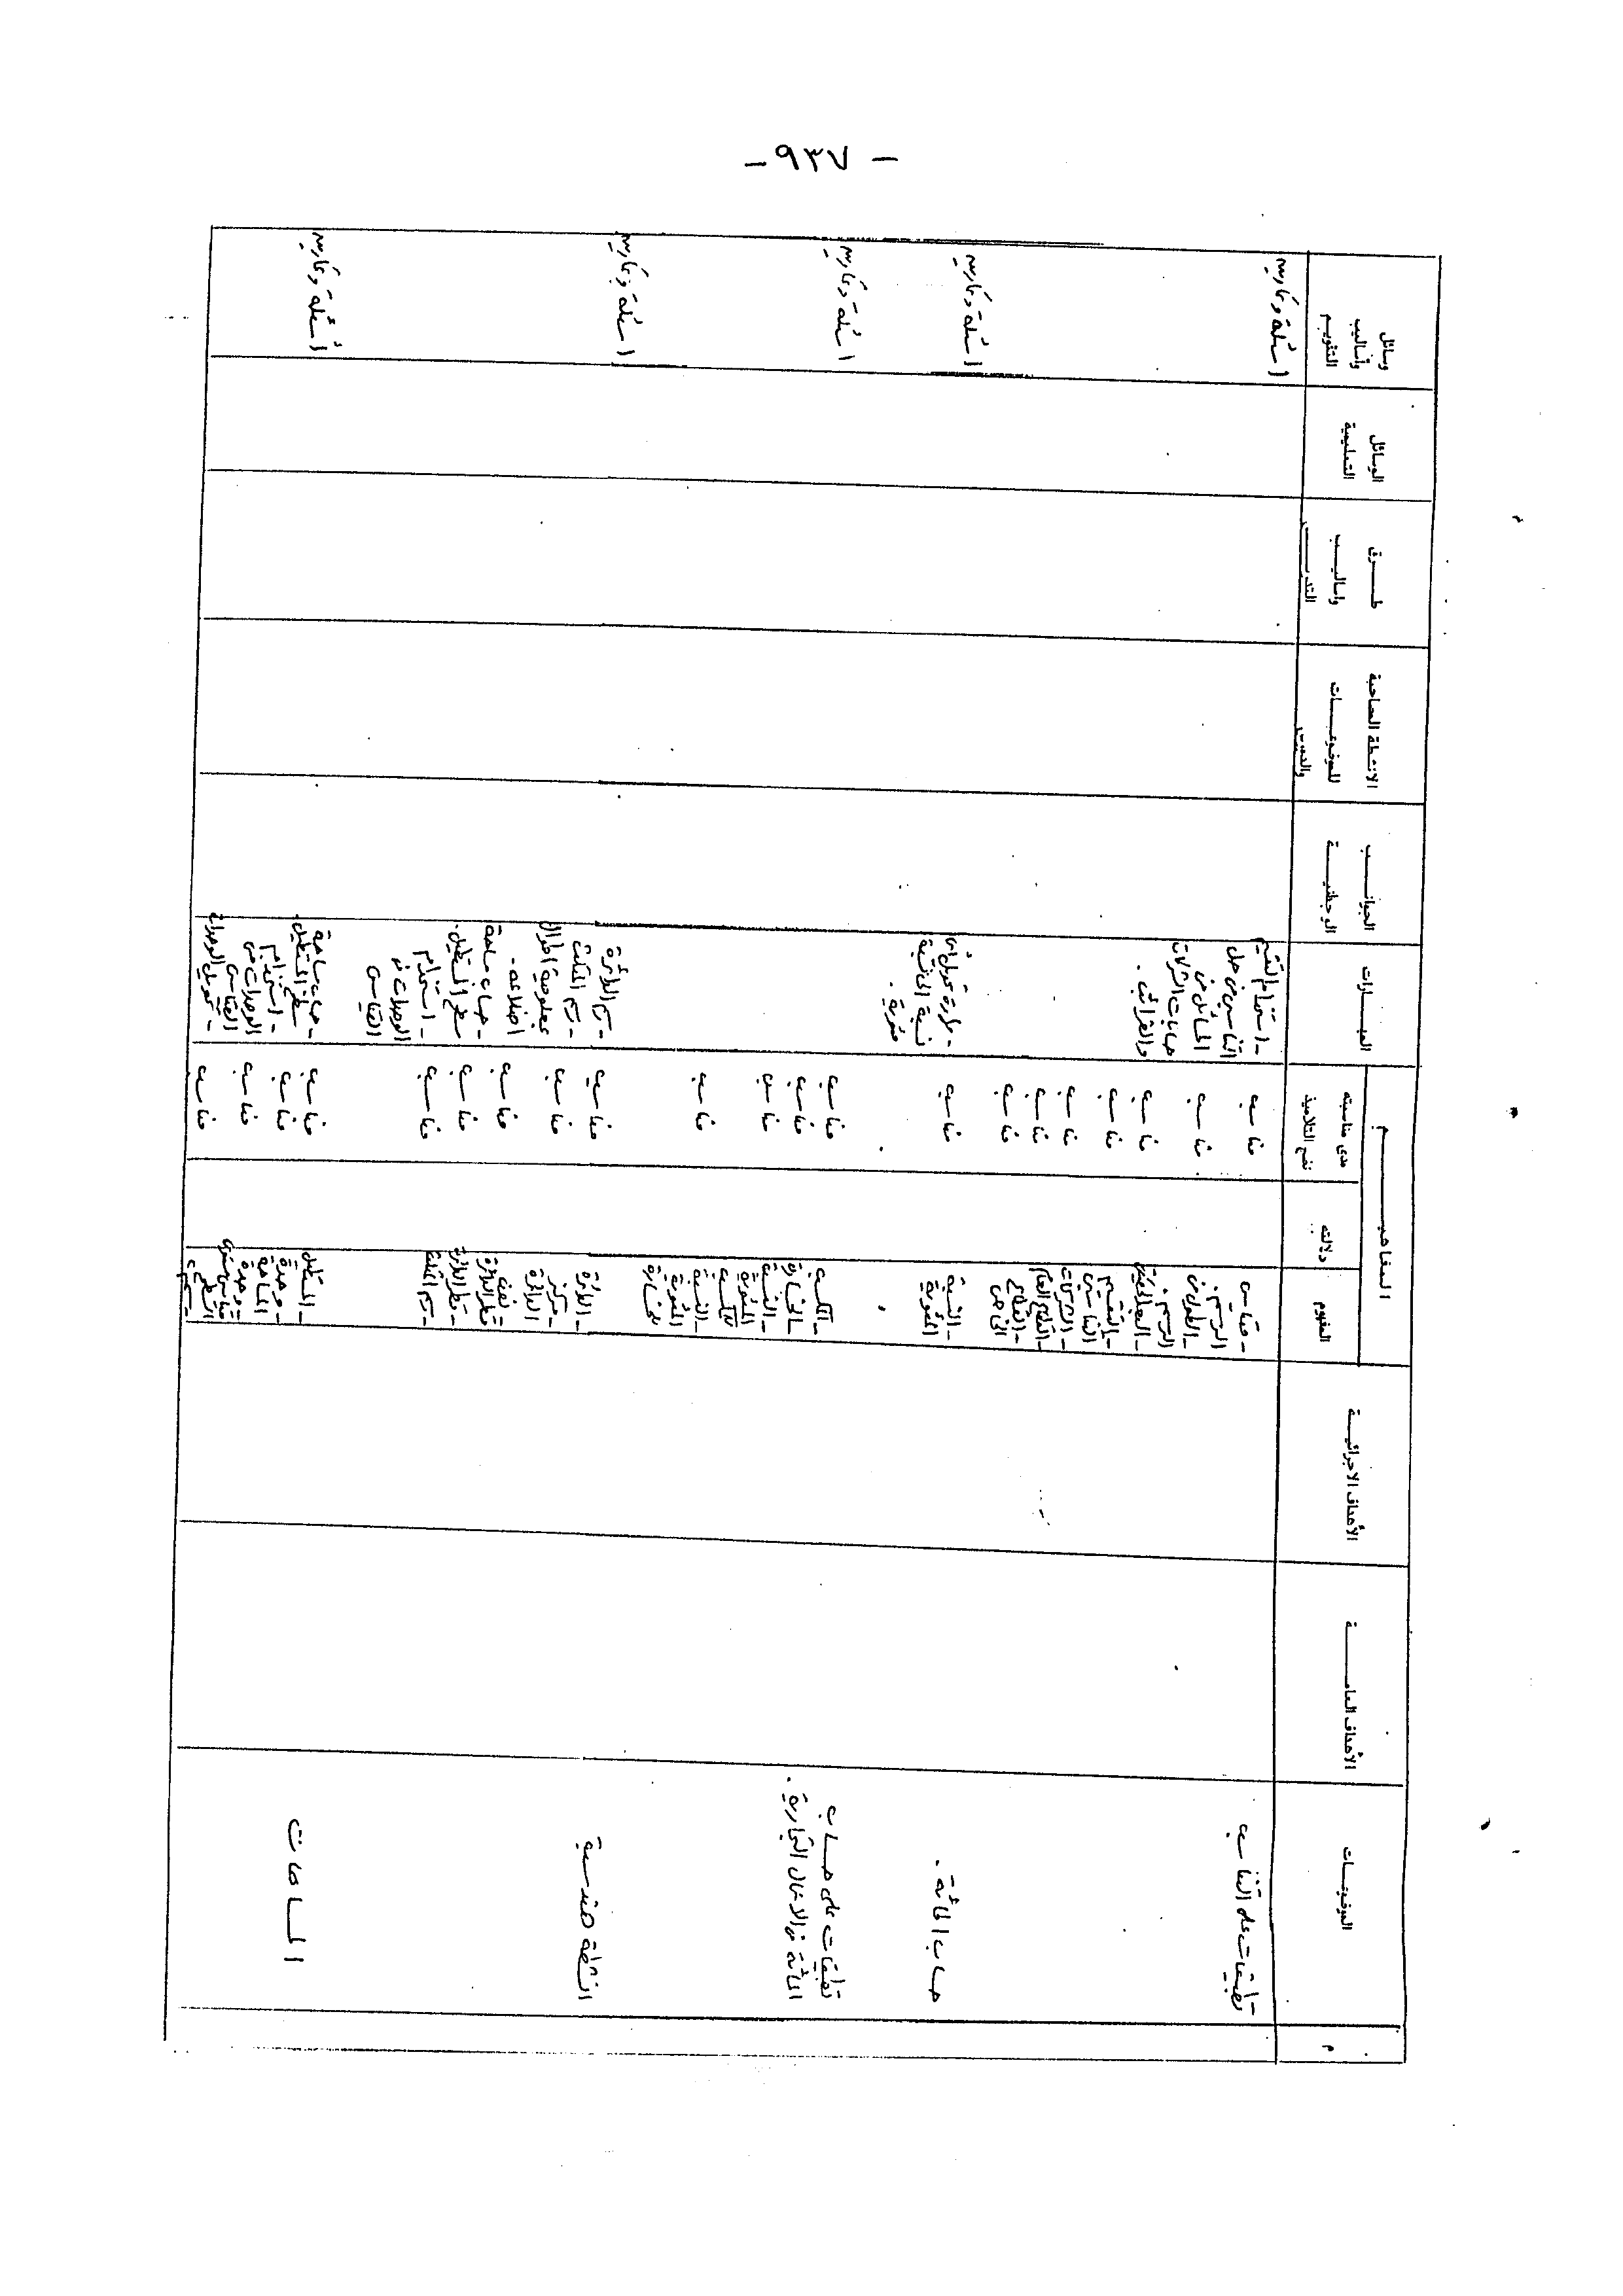 - ٩٣٧ -
م
الموضوعات
الأهداف العامة
الأهداف الاجرائية
المفاهيم
المفهوم
دلالته
مدى مناسبته
نضج التلاميذ
المهارات
الجوانب
الوجدانية
الانشطة المصاحبة
للموضوعات
طرق
واساليب
الوسائل
التعليمية
وسائل
وأساليب
التقويم
تطبيقات على التناسب
- مقياس
الرسم.
- الطول في
الرسم.
- الطول الحقيقى
- التقسيم
التناسبى
- الشركات
- القطاع العام
- القطاع
الخاص
مناسب
مناسب
مناسب
مناسب
مناسب
مناسب
مناسب
- استخدام التقسيم
التناسبى فى حل
المسائل فى
حسابات الشركات
والقرائب.
اسئلة وتمارين
حساب المائة.
- النسبة
المئوية
مناسب
- مهارة تحويل أى
نسبة الى نسبة
مئوية.
اسئلة وتمارين
تطبيقات على حساب
المائة فى الاعمال التجارية.
- المكسب
- الخسارة
- النسبة
المئوية
للمكسب
- النسبة
المئوية
للخسارة
مناسب
مناسب
مناسب
مناسب
اسئلة وتمارين
انشطة هندسية
- الدائرة
- مركز
الدائرة
- نصف
قطر الدائرة
- قطر الدائرة
- رسم المثلث
مناسب
مناسب
مناسب
مناسب
مناسب
- رسم الدائرة
- رسم المثلث
بمعلومية اطوال
اضلاعه.
- حساب مساحة
سطح المستطيل.
- استخدام
الوحدات فى
القياس
اسئلة وتمارين
المساحات
- المستطيل
- وحدة
المساحة
- وحدة
قياس مستوى
السطح
مناسب
مناسب
مناسب
مناسب
- حساب مساحة
سطح المستطيل.
- استخدام
الوحدات فى
القياس
- تحويل الوحدات
أسئلة وتمارين